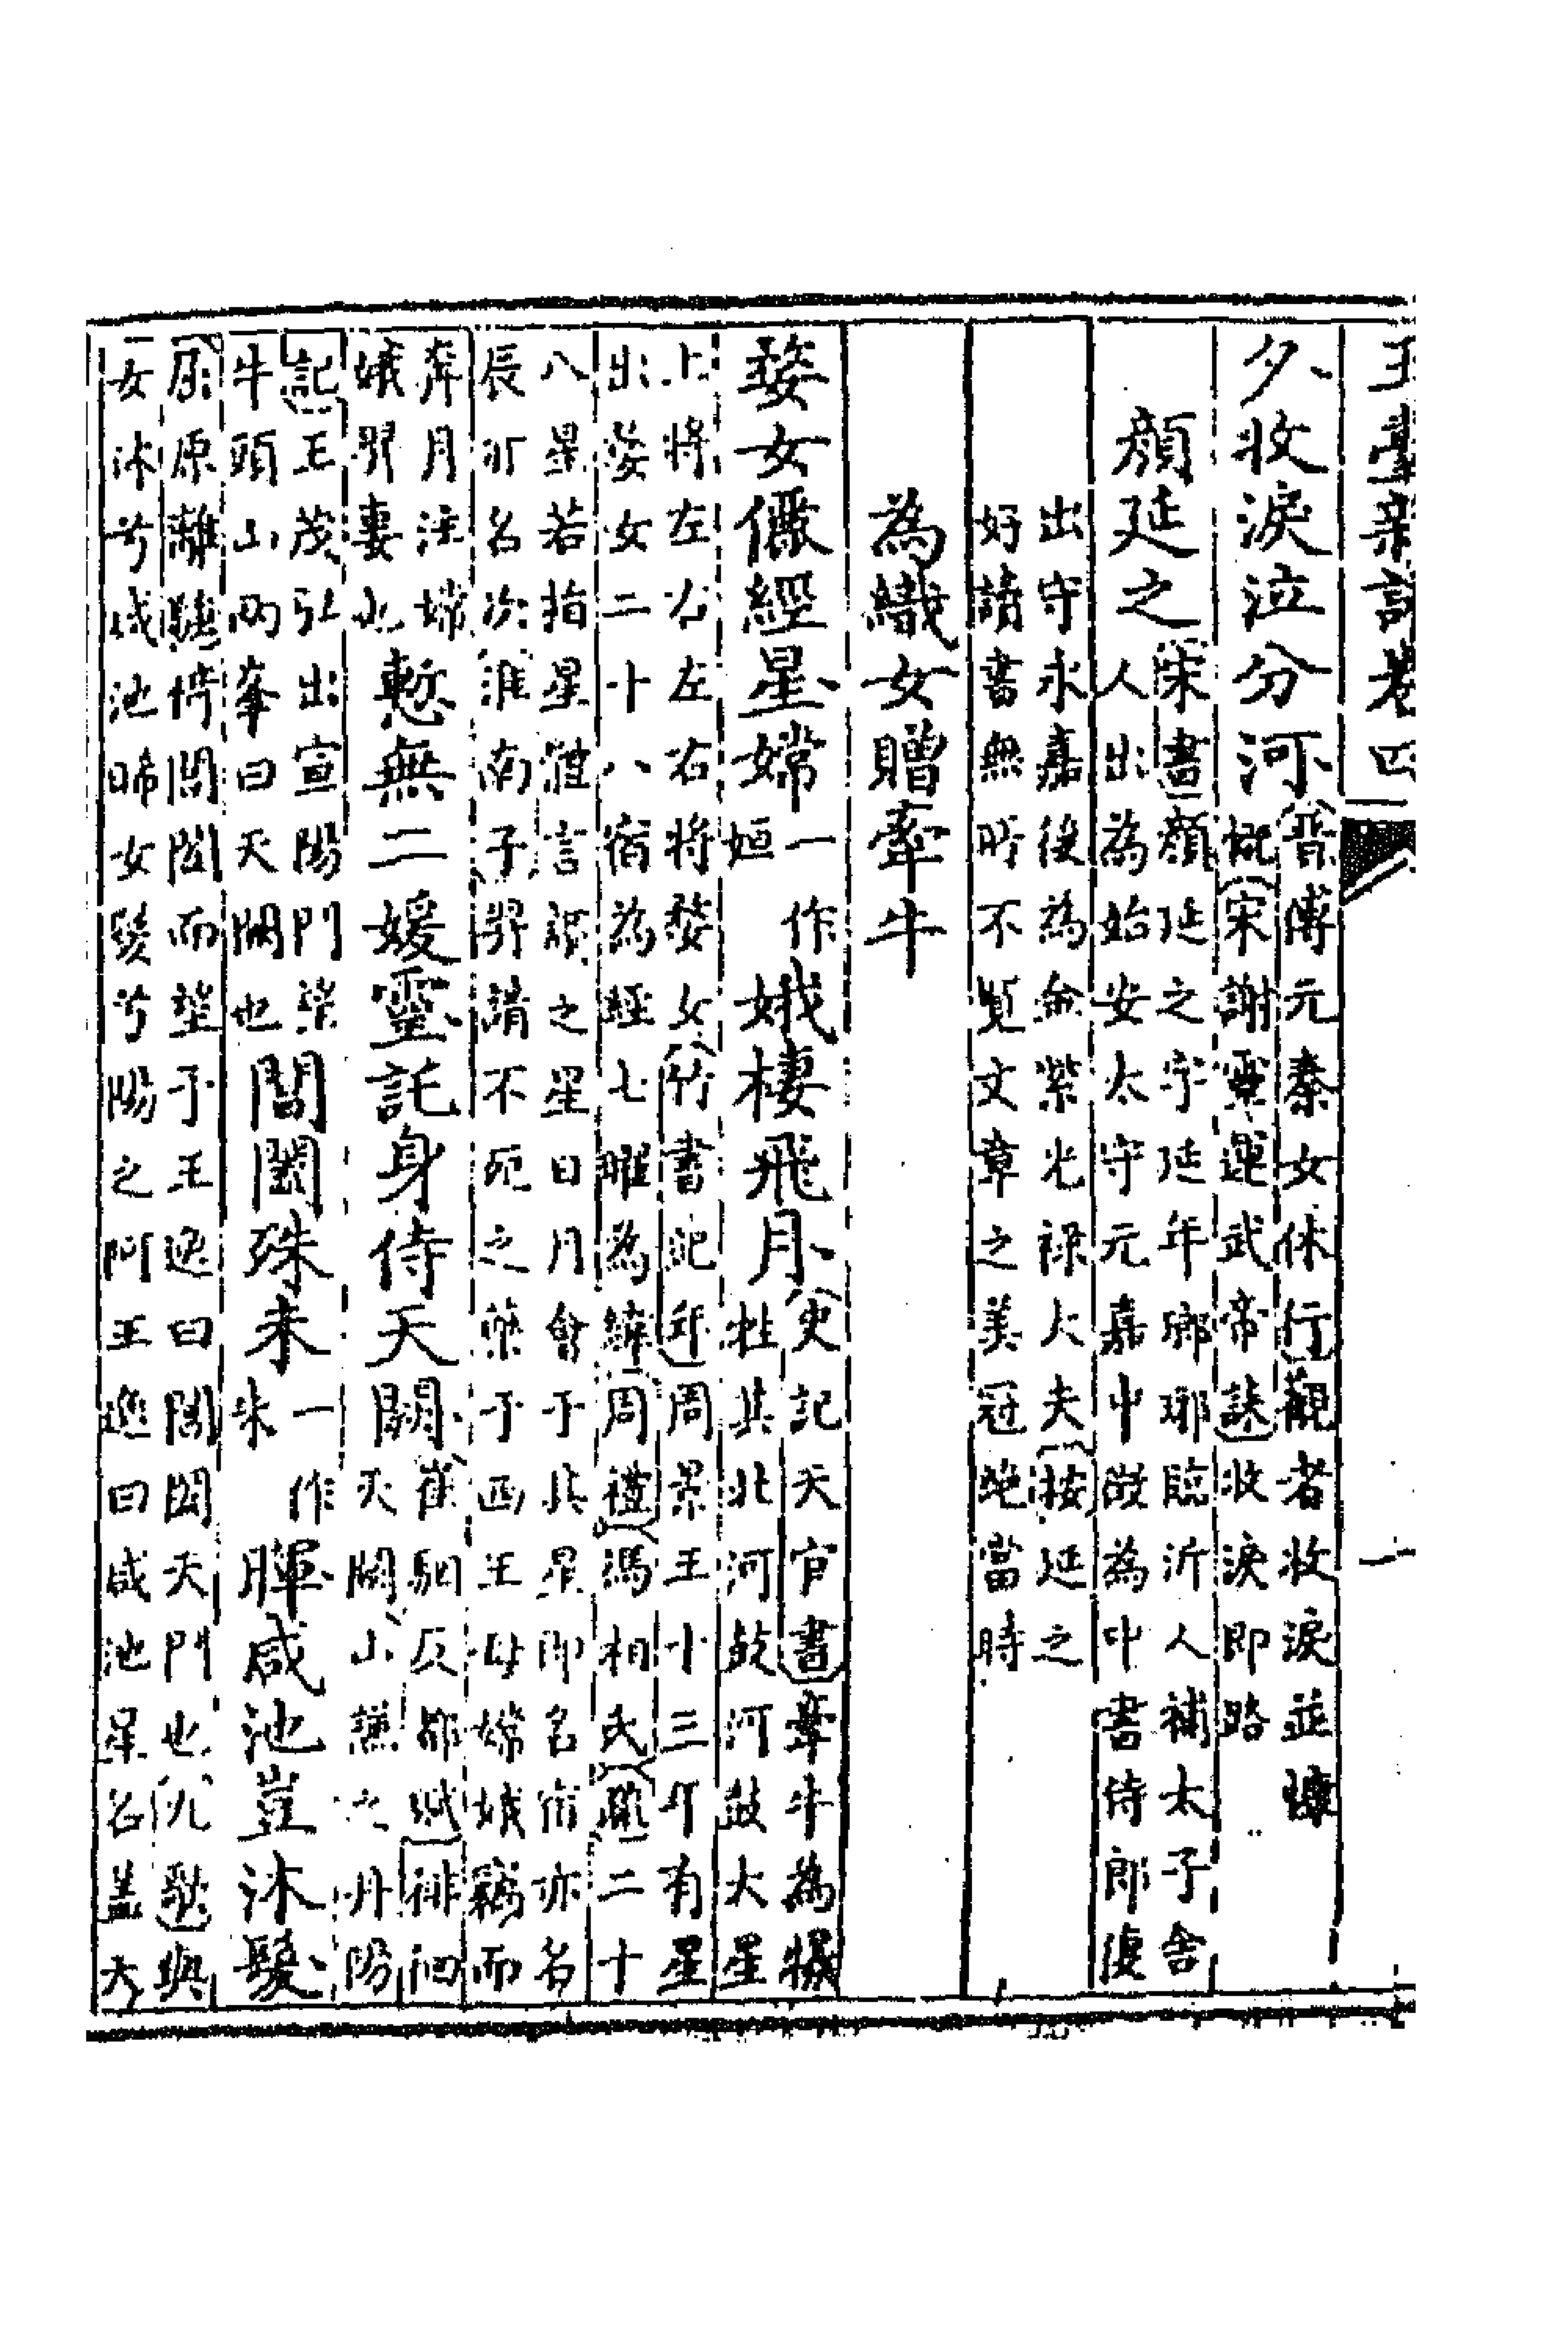 玉臺新詠卷四 一
夕收淚泣分河
晉傅元秦女休行觀者收淚並慷
慨宋謝靈運武帝誄收淚即路
顏延之
宋書顏延之字延年瑯琊臨沂人補太子舍
人出為始安太守元嘉中徵為中書侍郎復
出守永嘉後為金紫光祿大夫按延之
好讀書無所不覽文章之美冠絕當時
為織女贈牽牛
婺女儷經星嫦
一作
姮
娥棲飛月
史記天官書牽牛為犧
牲其北河鼓河鼓大星
上將左右左右將婺女竹書紀年周景王十三年有星
出婺女二十八宿為經七曜為緯周禮馮相氏疏二十
八星若指星體言謂之星日月會于其星即名宿亦名
辰亦名次淮南子羿請不死之藥于西王母嫦娥竊而
奔月注嫦
娥羿妻也
慙無二媛靈託身侍天闕
崔駰反都賦排
天闕山謙之丹陽
記王茂弘出宣陽門望
牛頭山兩峯曰天闕也
閶闔殊未
一作
朱
暉咸池豈沐髮
屈原離騷倚閶闔而望予王逸曰閶闔天門也九歌與
女沐兮咸池晞女髮兮陽之阿王逸曰咸池星名蓋天